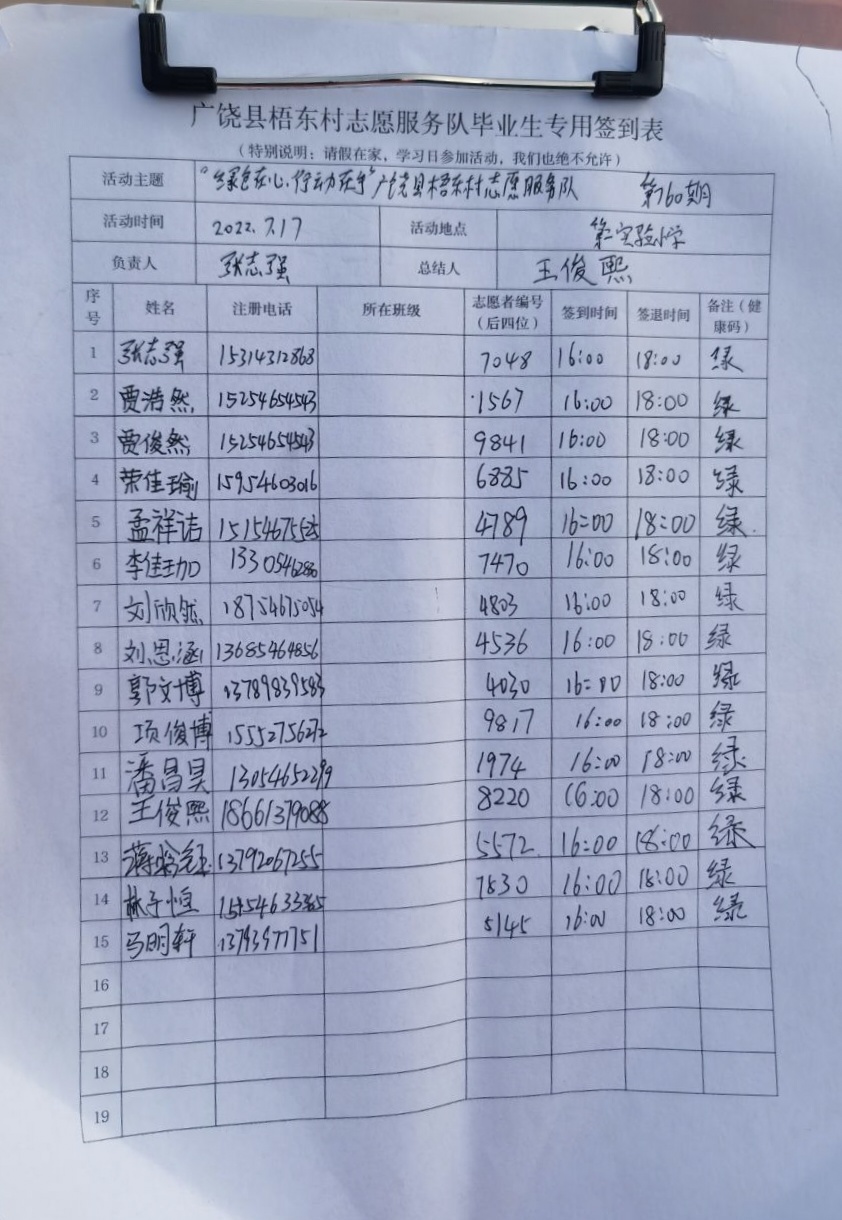 广饶县梧东村志愿服务队毕业生专用签到表
（特别说明：请假在家，学习日参加活动，我们也绝不允许）
活动主题 “绿色在心，行动在手”广饶县梧东村志愿服务队 第760期
活动时间 2022.7.17 活动地点 第二实验小学
负责人 张志强 总结人 王俊熙
序号 姓名 注册电话 所在班级 志愿者编号（后四位） 签到时间 签退时间 备注（健康码）
1 张志强 15314312868 7048 16:00 18:00 绿
2 贾浩然 15254654543 1567 16:00 18:00 绿
3 贾俊然 15254654543 9841 16:00 18:00 绿
4 荣佳瑜 15954603016 6885 16:00 18:00 绿
5 孟祥洁 15154675525 4789 16:00 18:00 绿
6 李佳珈 4470 16:00 18:00 绿
7 刘欣然 18754675054 4803 16:00 18:00 绿
8 刘恩涵 13685464856 4536 16:00 18:00 绿
9 郭文博 13789839583 4030 16:00 18:00 绿
10 项俊博 15552756272 9817 16:00 18:00 绿
11 潘昌昊 13054652299 1974 16:00 18:00 绿
12 王俊熙 18661379088 8220 16:00 18:00 绿
13 13792067255 5572 16:00 18:00 绿
14 林子恒 7830 16:00 18:00 绿
15 马明轩 13793977751 5145 16:00 18:00 绿
16
17
18
19